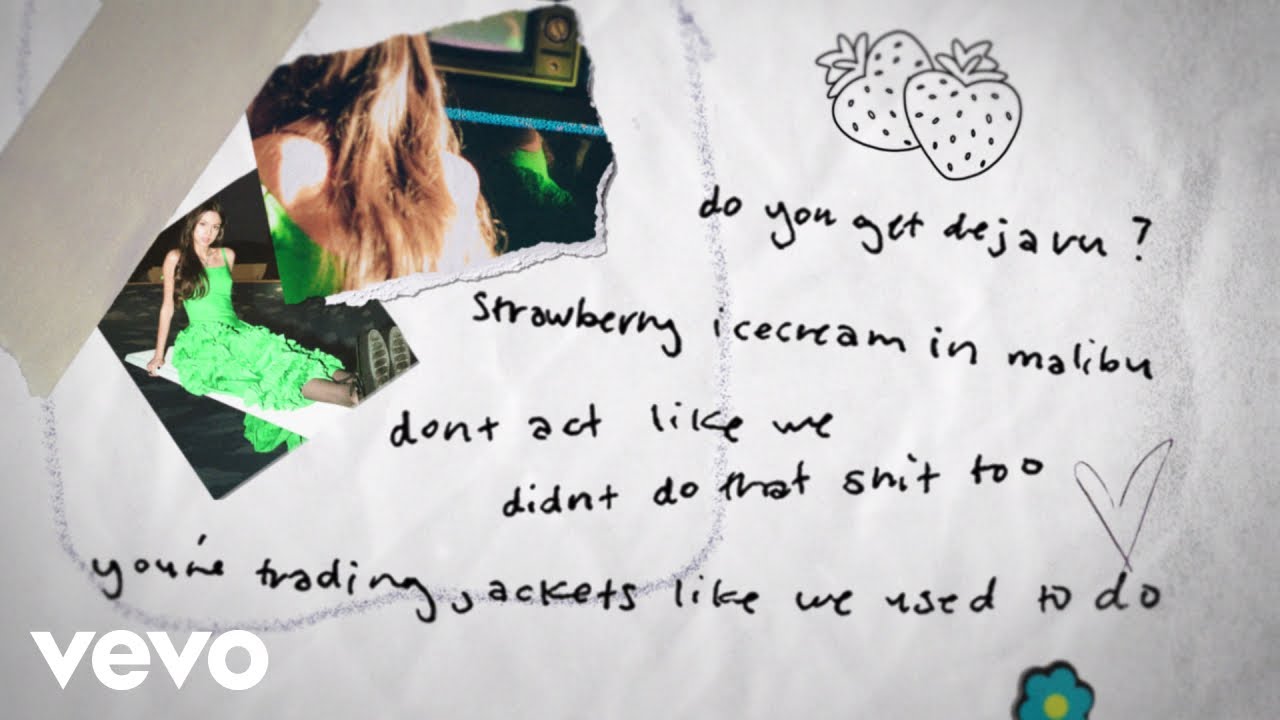 do you get deja vu?
strawberry icecream in malibu
dont act like we
didnt do that shit too
you're trading jackets like we used to do
vevo